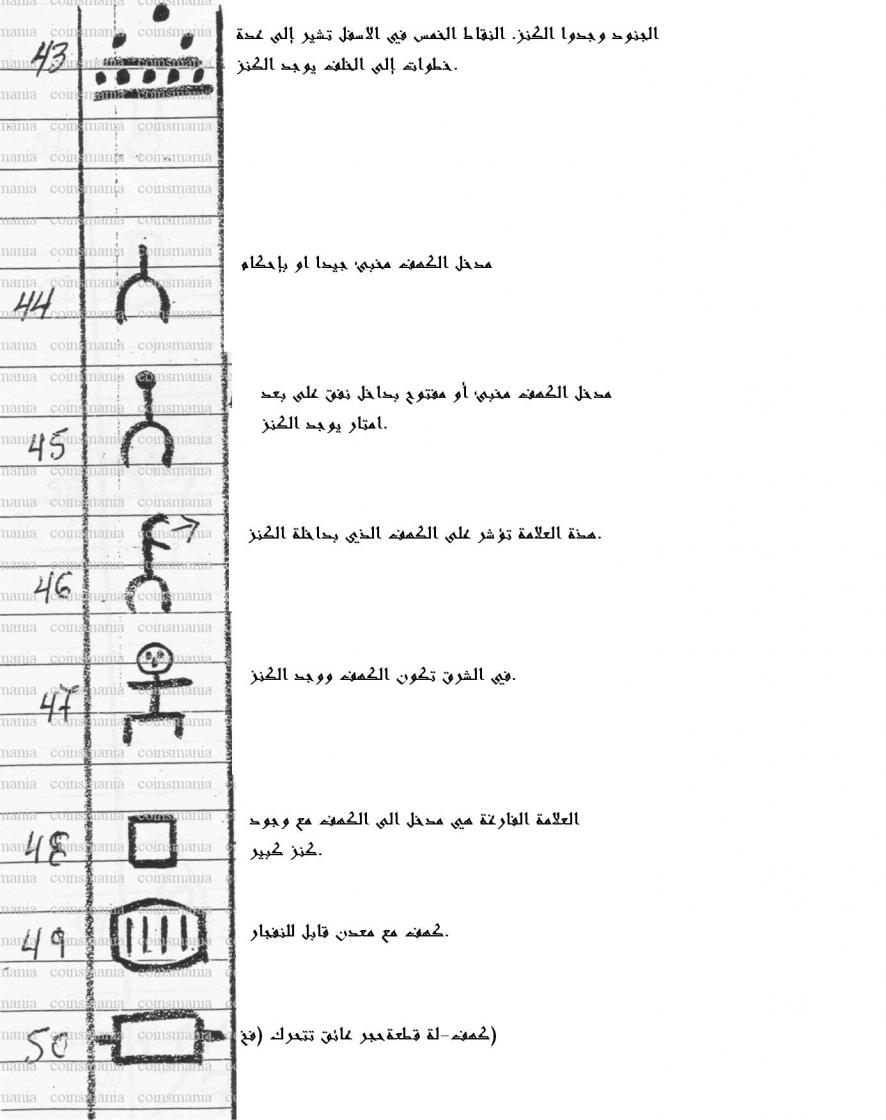 الجنود وجدوا الكنز. النقاط الخمس في الاسفل تشير إلى عدة
43 خطوات إلى الخلف يوجد الكنز.
مدخل الكهف مخبئ جيدا او بإحكام
44
مدخل الكهف مخبئ أو مفتوح بداخل نفق على بعد
امتار يوجد الكنز.
45
هذة العلامة تؤشر على الكهف الذي بداخلة الكنز.
46
في الشرق تكون الكهف ووجد الكنز.
47
العلامة الفارغة هي مدخل الى الكهف مع وجود
48 كنز كبير.
49 كهف مع معدن قابل للنفجار.
50 (كهف-لة قطعةحجر عائق تتحرك (فخ